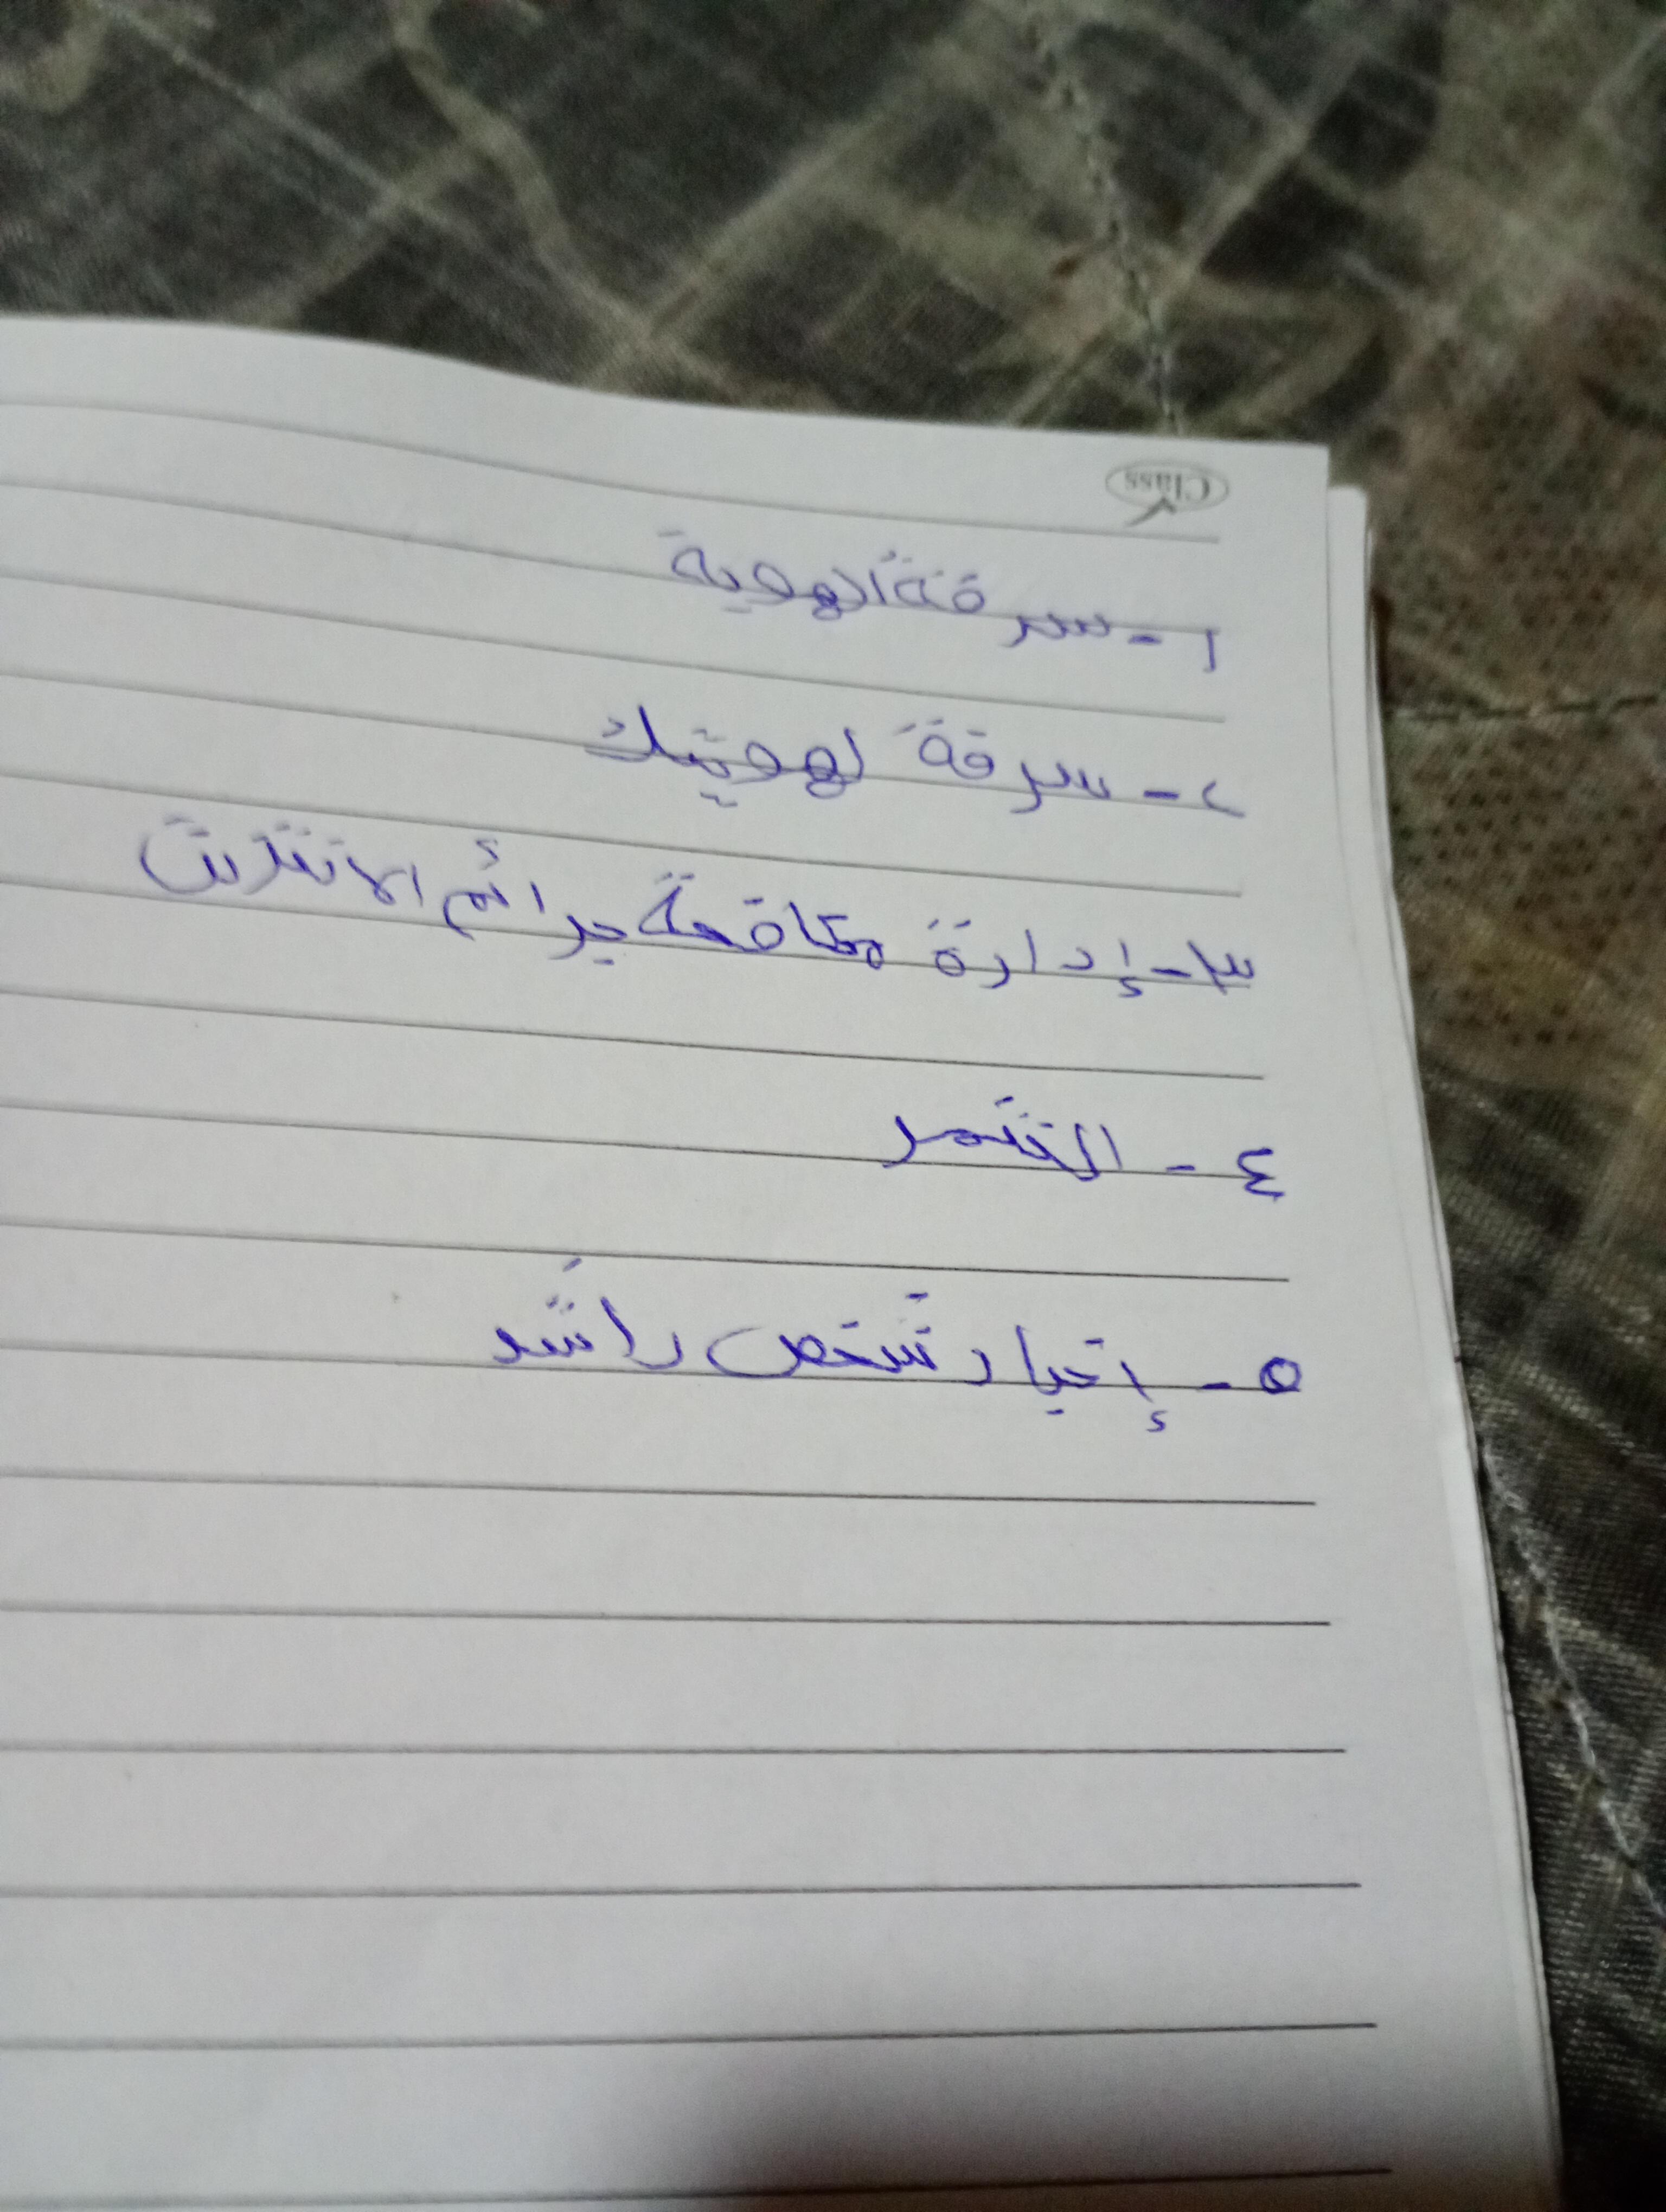 Class
١- سرقة الهوية
٢- سرقة لهويتك
٣- إدارة مكافحة جرائم الانترنت
٤- التنمر
٥- إخبار شخص راشد